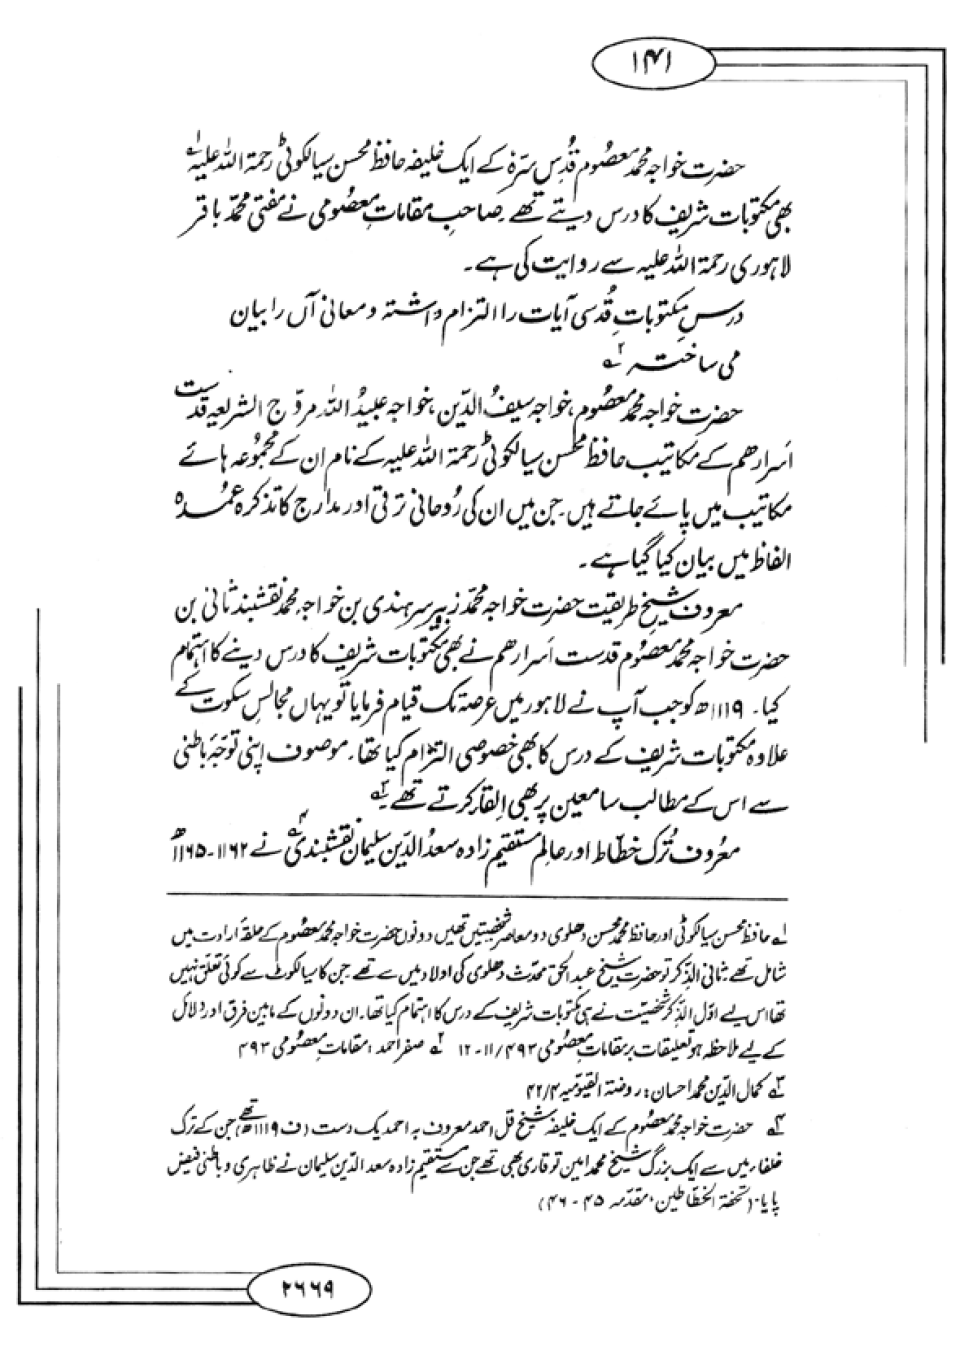 ۱۴۱
حضرت خواجہ محمد معصوم قُدِس سرّہٗ کے ایک خلیفہ حافظ محسن سیالکوٹی رحمۃ اللہ علیہ۱؎
بھی مکتوبات شریف کا درس دیتے تھے۔ صاحبِ مقاماتِ معصومی نے مفتی محمّد باقر
لاہوری رحمۃ اللہ علیہ سے روایت کی ہے۔
درسِ مکتوباتِ قُدسی آیات را التزام داشتہ و معانی آں را بیان
می ساختہ۲؎
حضرت خواجہ محمد معصوم، خواجہ سیفُ الدّین، خواجہ عبیدُ اللہ مروّج الشریعہ قدست
اَسرارھم کے مکاتیب حافظ محسن سیالکوٹی رحمۃ اللہ علیہ کے نام ان کے مجموعہ ہائے
مکاتیب میں پائے جاتے ہیں۔ جن میں ان کی رُوحانی ترقی اور مدارج کا تذکرہ عمُدہ
الفاظ میں بیان کیا گیا ہے۔
معروف شیخِ طریقت حضرت خواجہ محمّد زبیر سرہندی بن خواجہ محمد نقشبند ثانی بن
حضرت خواجہ محمد معصوم قدست اَسرارھم نے بھی مکتوبات شریف کا درس دینے کا اہتمام
کیا۔ ۱۱۱۹ھ کو جب آپ نے لاہور میں عرصہ تک قیام فرمایا تو یہاں مجالسِ سکوت کے
علاوہ مکتوبات شریف کے درس کا بھی خصوصی التزام کیا تھا۔ موصوف اپنی توجّہ باطنی
سے اس کے مطالب سامعین پر بھی القار کرتے تھے۔۳؎
معرُوف تُرک خطّاط اور عالِم مستقیم زادہ سعدُ الدّین سلیمان نقشبندی۴؎ نے ۱۱۶۲-۱۱۶۵ھ
۱؎ حافظ محسن سیالکوٹی اور حافظ محمد محسن دھلوی دو معاصر شخصیتیں تھیں دونوں حضرت خواجہ محمد معصوم کے حلقہ ارادت میں
شامل تھے۔ ثانی الذکر تو حضرت شیخ عبدالحق محدّث دھلوی کی اولاد میں سے تھے جن کا سیالکوٹ سے کوئی تعلق نہیں
تھا اس لیے اوّل الذکر شخصیت نے ہی مکتوبات شریف کے درس کا اہتمام کیا تھا۔ ان دونوں کے مابین فرق اور دلائل
کے لیے ملاحظہ ہو تعلیقات بر مقامات معصومی ۴۹۳/۱۱-۱۲ ۲؎ صفر احمد: مقاماتِ معصومی ۴۹۳
۳؎ کمال الدّین محمد احسان: روضۃ القیومیہ ۴۲/۴
۴؎ حضرت خواجہ محمد معصوم کے ایک خلیفہ شیخ قل احمد معروف بہ احمد یک دست (ف ۱۱۱۹ھ) تھے جن کے ترک
خلفاء میں سے ایک بزرگ شیخ محمد امین توقاری بھی تھے جن سے مستقیم زادہ سعد الدّین سلیمان نے ظاہری و باطنی فیض
پایا۔ (تحفۃ الخطّاطین، مقدّمہ ۴۵-۴۶)
۲۶۶۹